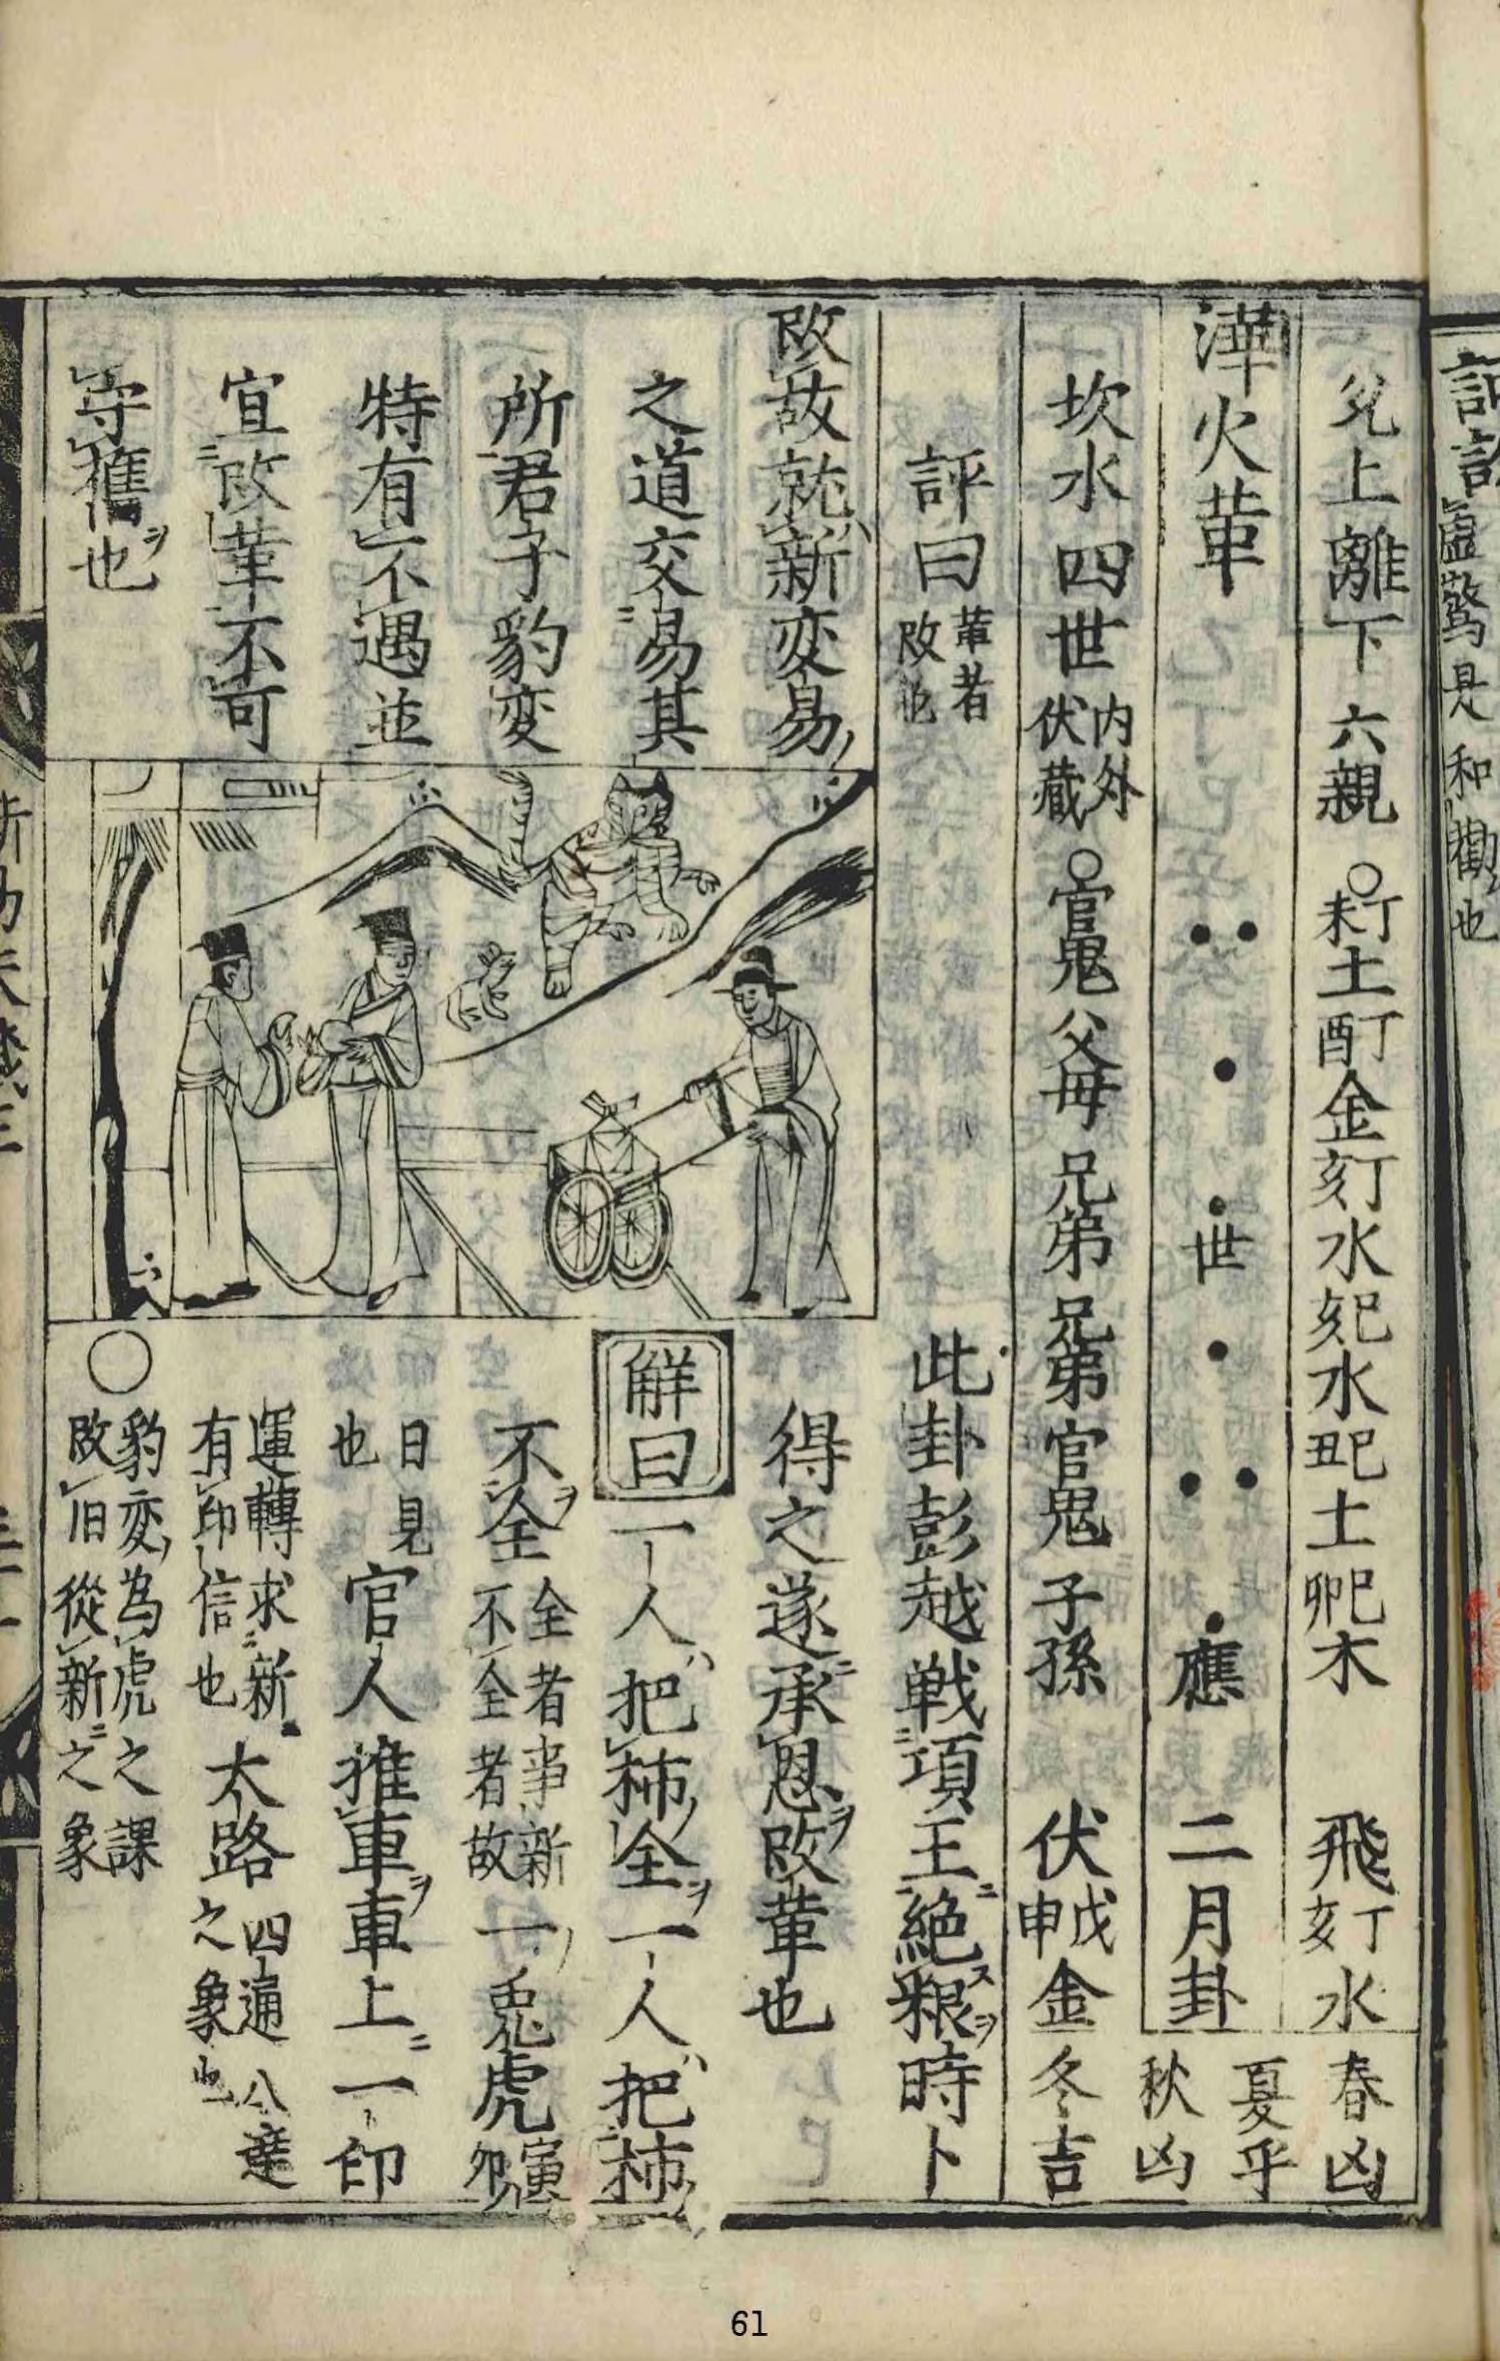 兌上離下 六親 ○丁未土 丁酉金 丁亥水 己亥水 己丑土 己卯木 飛丁亥水 春凶
澤火革 世 應 二月卦 夏平 秋凶
坎水四世 内外伏藏 ○官鬼 父母 兄弟 兄弟 官鬼 子孫 伏戊申金 冬吉
評曰 革者改也 此卦彭越戦項王絶粮時卜
得之遂承恩改革也
改故就新変易
之道交易其
所君子豹変
特有不遇並
宜改革不可
守舊也
解曰 一人把柿全一人把柿
不全 全者事新不全者故 一兎虎 寅卯
日見也 官人推車車上一印
運轉求新有印信也 大路 四通八達之象也
○ 豹変為虎之課改旧從新之象
61